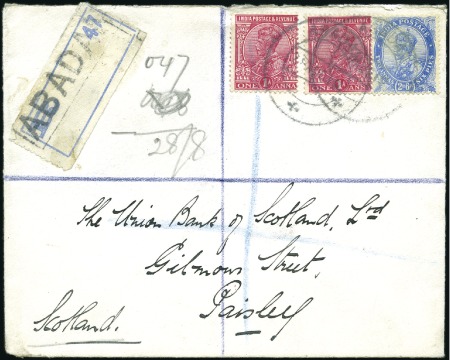 47
ABADAN
047
28/8
INDIA POSTAGE & REVENUE
1A
ONE ANNA
INDIA POSTAGE & REVENUE
1A
ONE ANNA
INDIA POSTAGE
The Union Bank of Scotland, Ltd
Gilmour Street,
Paisley
Scotland.